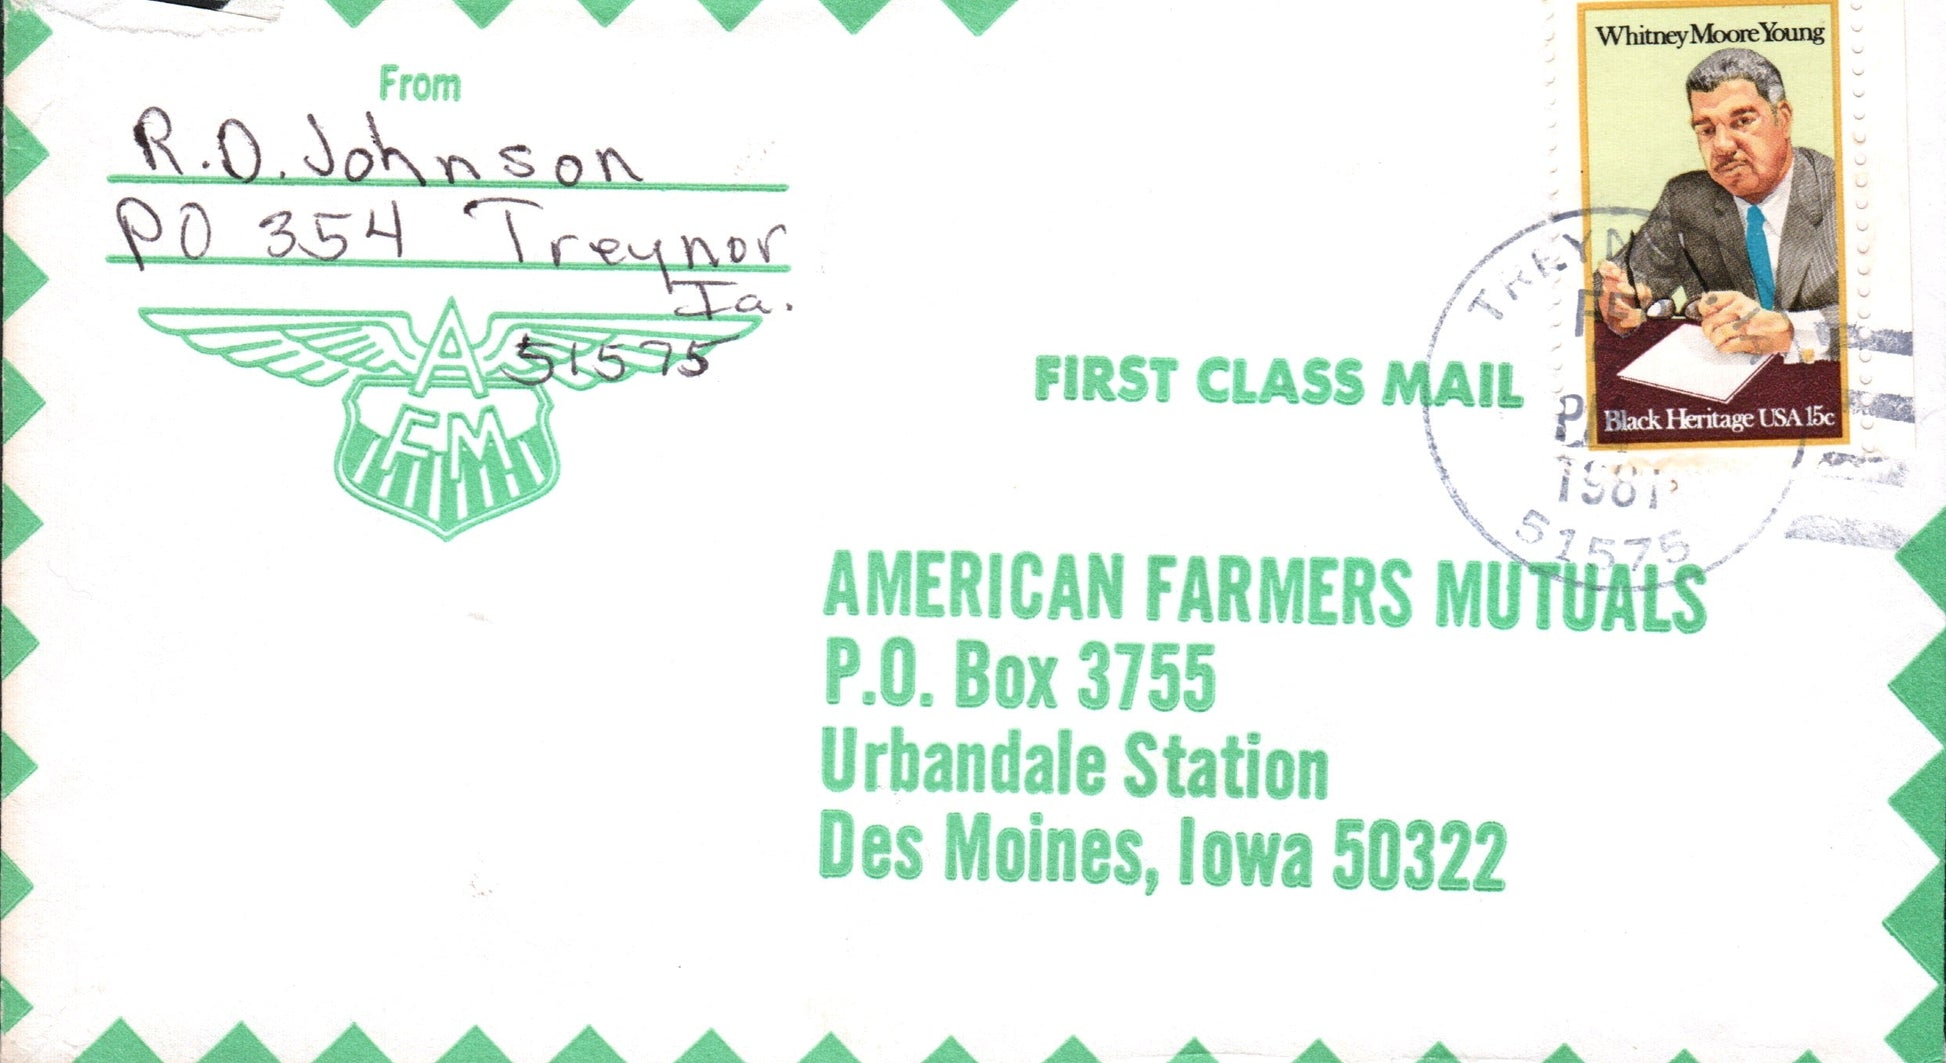 From
R.D. Johnson
PO 354 Treynor
Ia.
51575
A
FM
Whitney Moore Young
Black Heritage USA 15c
TREYNO
FE
PM
1981
51575
FIRST CLASS MAIL
AMERICAN FARMERS MUTUALS
P.O. Box 3755
Urbandale Station
Des Moines, Iowa 50322